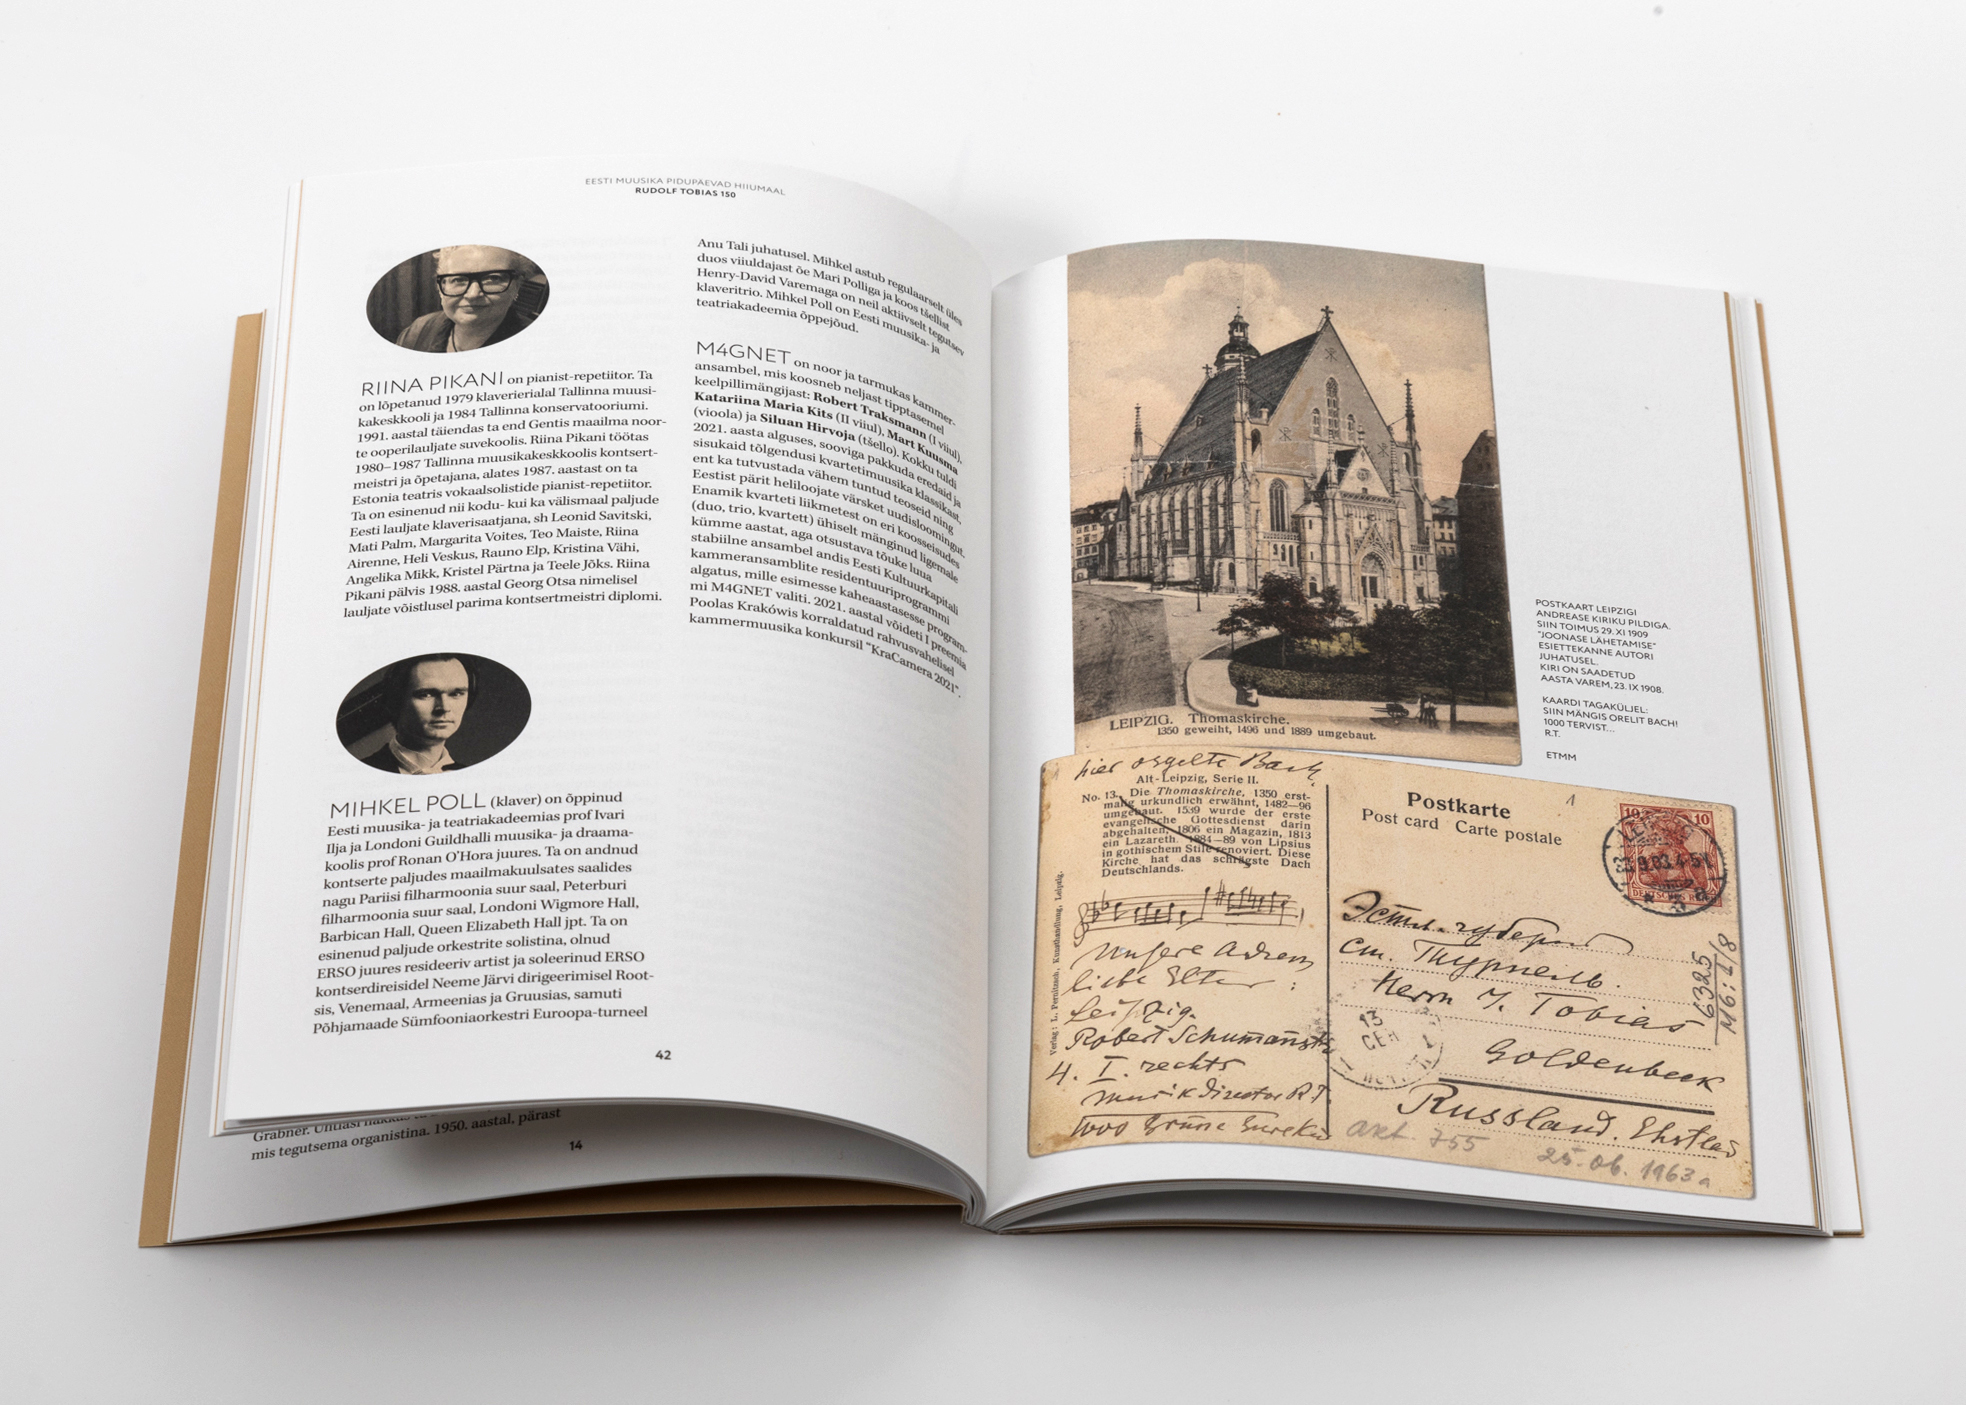 EESTI MUUSIKA PIDUPÄEVAD HIIUMAAL
RUDOLF TOBIAS 150
RIINA PIKANI on pianist-repetiitor. Ta
on lõpetanud 1979 klaverierialal Tallinna muusi-
kakeskkooli ja 1984 Tallinna konservatooriumi.
1991. aastal täiendas ta end Gentis maailma noor-
te ooperilauljate suvekoolis. Riina Pikani töötas
1980–1987 Tallinna muusikakeskkoolis kontsert-
meistri ja õpetajana, alates 1987. aastast on ta
Estonia teatris vokaalsolistide pianist-repetiitor.
Ta on esinenud nii kodu- kui ka välismaal paljude
Eesti lauljate klaverisaatjana, sh Leonid Savitski,
Mati Palm, Margarita Voites, Teo Maiste, Riina
Airenne, Heli Veskus, Rauno Elp, Kristina Vähi,
Angelika Mikk, Kristel Pärtna ja Teele Jõks. Riina
Pikani pälvis 1988. aastal Georg Otsa nimelisel
lauljate võistlusel parima kontsertmeistri diplomi.
MIHKEL POLL (klaver) on õppinud
Eesti muusika- ja teatriakadeemias prof Ivari
Ilja ja Londoni Guildhalli muusika- ja draama-
koolis prof Ronan O'Hora juures. Ta on andnud
kontserte paljudes maailmakuulsates saalides
nagu Pariisi filharmoonia suur saal, Peterburi
filharmoonia suur saal, Londoni Wigmore Hall,
Barbican Hall, Queen Elizabeth Hall jpt. Ta on
esinenud paljude orkestrite solistina, olnud
ERSO juures resideeriv artist ja soleerinud ERSO
kontserdireisidel Neeme Järvi dirigeerimisel Root-
sis, Venemaal, Armeenias ja Gruusias, samuti
Põhjamaade Sümfooniaorkestri Euroopa-turneel
Anu Tali juhatusel. Mihkel astub regulaarselt üles
duos viiuldajast õe Mari Polliga ja koos tšellist
Henry-David Varemaga on neil aktiivselt tegutsev
klaveritrio. Mihkel Poll on Eesti muusika- ja
teatriakadeemia õppejõud.
M4GNET on noor ja tarmukas kammer-
ansambel, mis koosneb neljast tipptasemel
keelpillimängijast: Robert Traksmann (I viiul),
Katariina Maria Kits (II viiul), Mart Kuusma
(vioola) ja Siluan Hirvoja (tšello). Kokku tuldi
2021. aasta alguses, sooviga pakkuda eredaid ja
sisukaid tõlgendusi kvartetimuusika klassikast,
ent ka tutvustada vähem tuntud teoseid ning
Eestist pärit heliloojate värsket uudisloomingut.
Enamik kvarteti liikmetest on eri koosseisudes
(duo, trio, kvartett) ühiselt mänginud ligemale
kümme aastat, aga otsustava tõuke luua
stabiilne ansambel andis Eesti Kultuurkapitali
kammeransamblite residentuuriprogrammi
algatus, mille esimesse kaheaastasesse program-
mi M4GNET valiti. 2021. aastal võideti I preemia
Poolas Krakówis korraldatud rahvusvahelisel
kammermuusika konkursil "KraCamera 2021".
42
mis tegutsema organistina. 1950. aastal, pärast
14
LEIPZIG. Thomaskirche.
1350 geweiht, 1496 und 1889 umgebaut.
POSTKAART LEIPZIGI
ANDREASE KIRIKU PILDIGA.
SIIN TOIMUS 29. XI 1909
"JOONASE LÄHETAMISE"
ESIETTEKANNE AUTORI
JUHATUSEL.
KIRI ON SAADETUD
AASTA VAREM, 23. IX 1908.
KAARDI TAGAKÜLJEL:
SIIN MÄNGIS ORELIT BACH!
1000 TERVIST...
R.T.
ETMM
hier orgelte Bach
Alt-Leipzig, Serie II.
No. 13. Die Thomaskirche, 1350 erst-
malig urkundlich erwähnt, 1482—96
umgebaut. 1539 wurde der erste
evangelische Gottesdienst darin
abgehalten, 1806 ein Magazin, 1813
ein Lazareth. 1884—89 von Lipsius
in gothischem Stile renoviert. Diese
Kirche hat das schrägste Dach
Deutschlands.
Verlag: L. Pernitzsch, Kunsthandlung, Leipzig.
Unsere Adresse
liebe Elter:
Leipzig.
Robert Schumannstr
4. I. rechts
Musikdirector R.T.
1000 Grüsse
Postkarte
Post card Carte postale
1
10 10
DEUTSCHES REICH
Эстл. губерн
ст. Турпель.
Herrn J. Tobias
Goldenbeck
Russland. Ehstland
6325
M6:1/8
13
СЕН
akt. 755
25.06.1963a